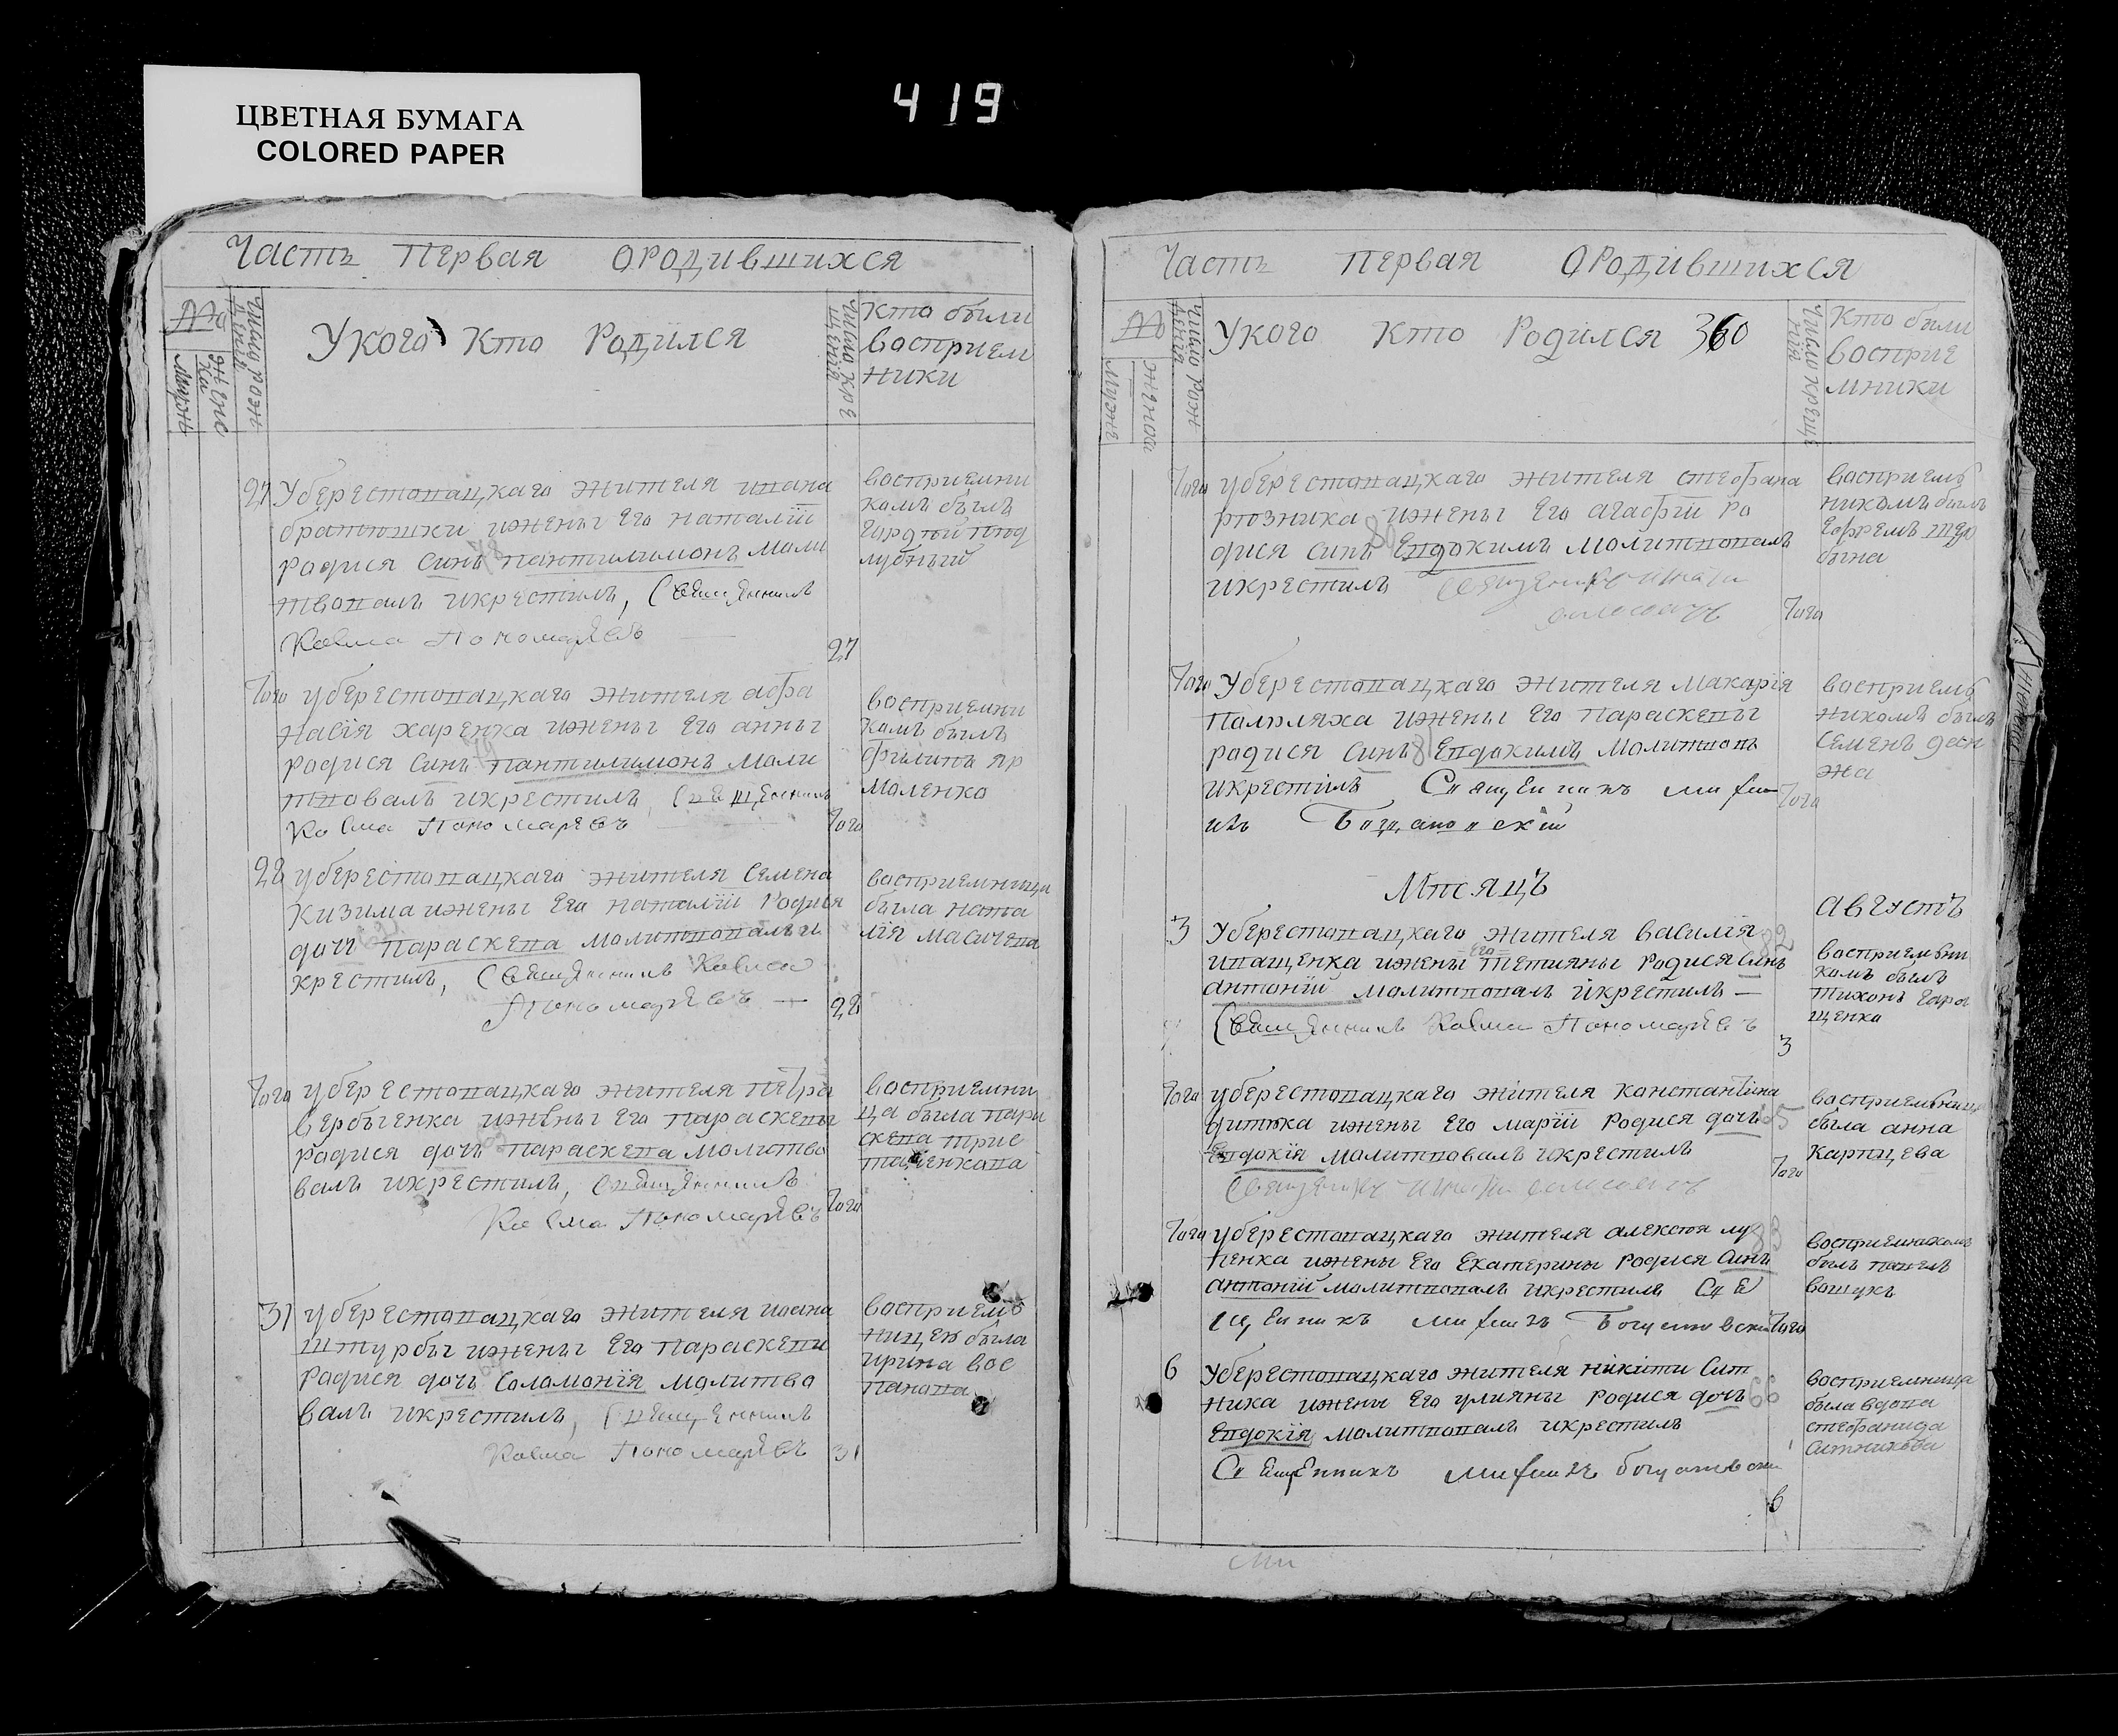 ЦВЕТНАЯ БУМАГА
COLORED PAPER
419
Часть Первая ородившихся
№
Число рожденія
Укого Кто Родился
Число крещенія
Кто были
восприем
ники
мужес
женс
27 Уберестовацкаго жителя ивана
братюшки ижены Его наталіи
родися синъ пантилимонъ моли
твовалъ икрестилъ, Священникъ
Косма Пономаревъ
27
восприемни
комъ былъ
Гордѣй Пѣод
лубный
Того уберестовацкаго жителя афа
насія харенка ижены Его анны
родися синъ пантилимонъ моли
твовалъ икрестилъ, Священникъ
Косма Пономаревъ
Того
восприемни
комъ былъ
филипъ яр
моленко
28 уберестовацкаго жителя Семена
кизима ижены Его наталіи Родися
дочь параскева молитвовалъ и
крестилъ, Священникъ Косма
Пономаревъ
28
восприемница
была ната
лія масичева
Того уберестовацкаго жителя пѣтра
вербыенка ижены Его параскевы
родися дочь параскева молитво
валъ икрестилъ, Священникъ
Косма Пономаревъ
Того
восприемни
ца была пара
скева трис
таченкова
31 уберестовацкаго жителя иоана
штурбы ижены Его параскеви
родися дочь Соломонія молитво
валъ икрестилъ, Священникъ
Косма Пономаревъ
31
восприемъ
ницею была
ирина вос
панова
Часть Первая ородившихся
№
Укого Кто Родился 360
Кто были
восприе
мники
мужес
женска
Того уберестовацкаго жителя стефана
рюзника ижены Его агафіи ро
дися синъ Евдокимъ молитвовалъ
икрестилъ
80
Того
восприемъ
никомъ былъ
Ефремъ щер
бина
Того Уберестовацкаго жителя Макарія
Палъляха ижены Его Параскевы
родися синъ 81 Евдокимъ молитвовъ
икрестілъ Священникъ мифи
изъ Богдановскій
Того
восприемъ
никомъ былъ
Семенъ десн
жа
Мѣсяцъ
Августъ
3 Уберестовацкаго жителя василія 82
иващенка ижены Его тетияны родися синъ
антоній молитвовалъ икрестилъ —
Священникъ Косма Пономаревъ
3
восприемъни
комъ былъ
тихонъ Гара
щенко
Того уберестовацкаго жителя константіна
дитюка ижены Его маріи Родися дочь 65
Евдокія молитвовалъ икрестилъ
Того
восприемъница
была анна
Карпцева
Того уберестовацкаго жителя алексѣя лу 83
ценка ижены Его Екатерины родися синъ
антоній молитвовалъ икрестилъ Свѣ
Того
восприемникомъ
былъ павелъ
вошукъ
6 Уберестовацкаго жителя нікіти Сит
ника ижены Его улияны родися дочь 66
Евдокія молитвовалъ икрестилъ
6
восприемница
была вдова
стефанида
ситникова